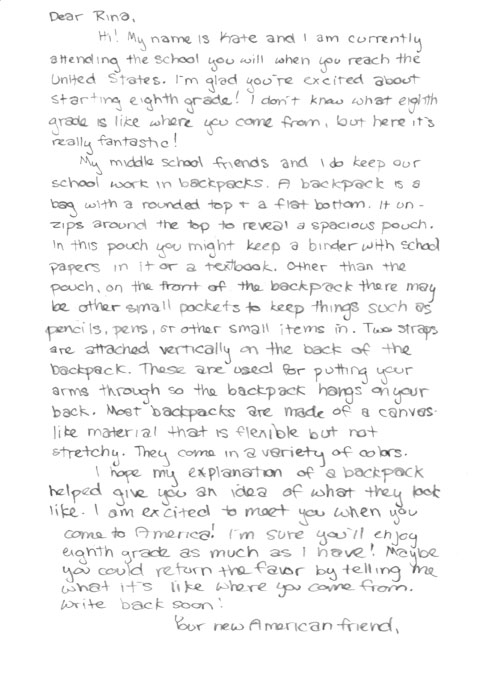 Dear Rina,
Hi! My name is Kate and I am currently
attending the school you will when you reach the
United States. I'm glad you're excited about
starting eighth grade! I don't know what eighth
grade is like where you come from, but here it's
really fantastic!
My middle school friends and I do keep our
school work in backpacks. A backpack is a
bag with a rounded top + a flat bottom. It un-
zips around the top to reveal a spacious pouch.
In this pouch you might keep a binder with school
papers in it or a textbook. Other than the
pouch, on the front of the backpack there may
be other small pockets to keep things such as
pencils, pens, or other small items in. Two straps
are attached vertically on the back of the
backpack. These are used for putting your
arms through so the backpack hangs on your
back. Most backpacks are made of a canvas-
like material that is flexible but not
stretchy. They come in a variety of colors.
I hope my explanation of a backpack
helped give you an idea of what they look
like. I am excited to meet you when you
come to America! I'm sure you'll enjoy
eighth grade as much as I have! Maybe
you could return the favor by telling me
what it's like where you come from.
Write back soon!
Your new American friend,